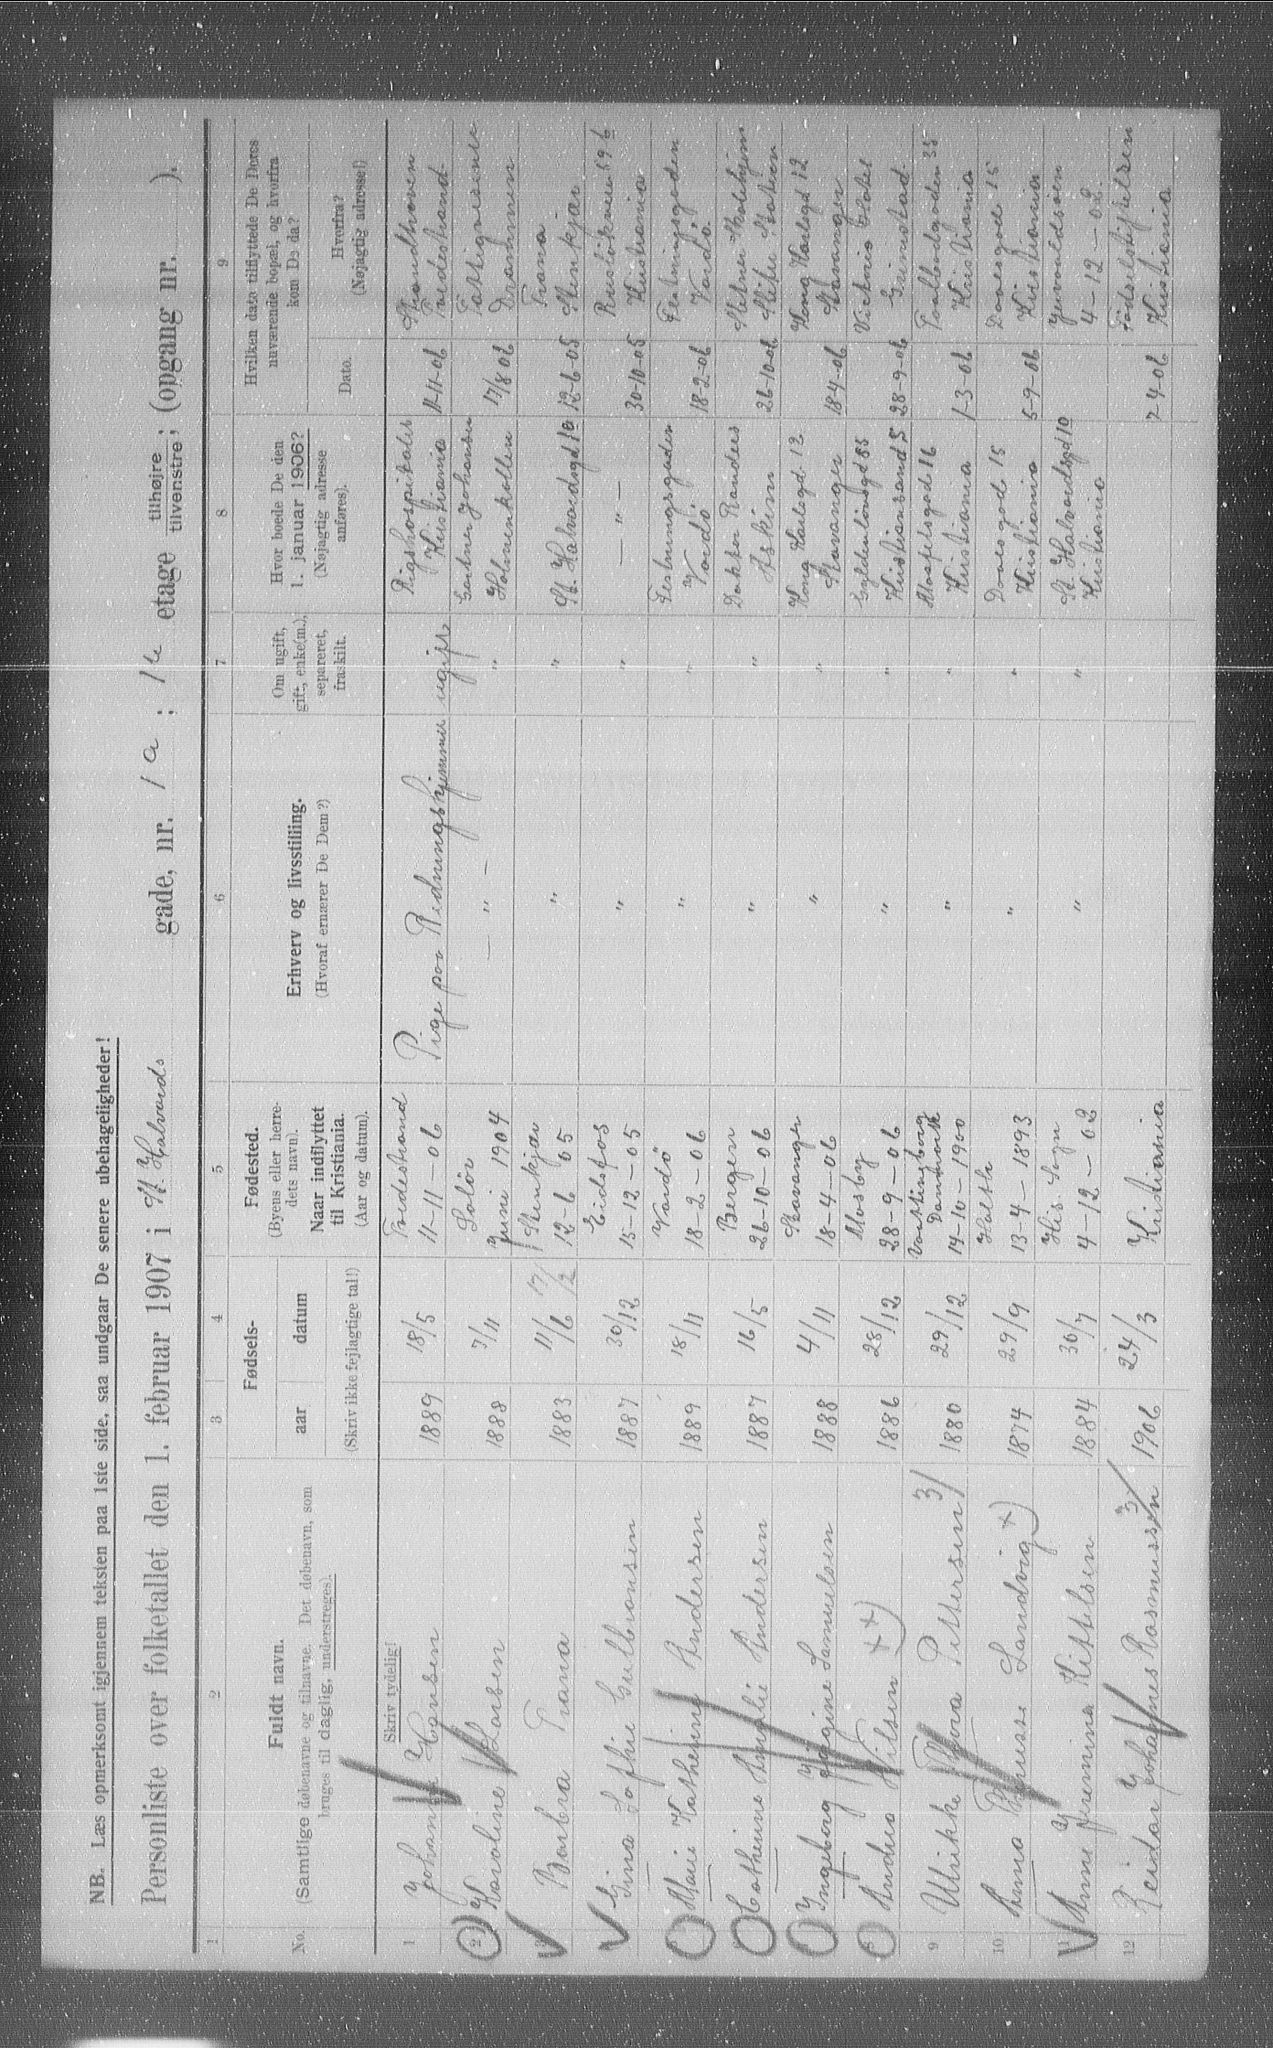 NB. Læs opmerksomt igjennem teksten paa 1ste side, saa undgaar De senere ubehageligheder!
Personliste over folketallet den 1. februar 1907 i St. Halvards gade, nr. 1a; 1ste etage tilhøjre tilvenstre; (opgang nr. ).
1 2 3 4 5 6 7 8 9
No.
Fuldt navn.
(Samtlige døbenavne og tilnavne. Det døbenavn, som
bruges til daglig, understreges).
Fødsels-
aar datum
(Skriv ikke fejlagtige tal!)
Fødested.
(Byens eller herre-
dets navn).
Naar indflyttet
til Kristiania.
(Aar og datum).
Erhverv og livsstilling.
(Hvoraf ernærer De Dem?)
Om ugift,
gift, enke(m.),
separeret,
fraskilt.
Hvor boede De den
1. januar 1906?
(Nøjagtig adresse
anføres).
Hvilken dato tilflyttede De Deres
nuværende bopæl, og hvorfra
kom De da?
Dato.
Hvorfra?
(Nøjagtig adresse!)
Skriv tydelig!
1 Johanna Hansen 1889 18/5 Tvedestrand 11-11-06 Pige paa Redningshjemmet ugift Rigshospitalet Kristiania 11-11-06 Tvedestrand
2 Karoline Larsen 1888 7/11 Solør Juni 1904 — " — " Gartner Johansen Holmenkollen 17/8 06 Drammen
3 Barbra Trana 1883 11/6 Stenkjær 12-6 05 " " St. Halvardsgd 1a 12-6-05 Trana Stenkjær
Gina Sofhie Gulbransen 1887 30/12 Eidsfos 15-12-05 " " — " — 30-10-05 Kristiania
Marie Kathrine Andersen 1889 18/11 Vardö 18-2-06 " " Festningsgaden Vardö 18-2-06 Festningsgaden Vardö
Cathrine Amalie Andersen 1887 16/5 Bergen 26-10-06 " " Doktor Randers Askim 26-10-06
Ingeborg Jørgine Samuelsen 1888 4/11 Stavanger 18-4-06 " " Kong Karlsgd. 12 Stavanger 18-4-06 Kong Karlsgd 12 Stavanger
Andrea Nilsen xx) 1886 28/12 Mosby 28-9-06 " " Kristiansand S 28-9-06 Grimstad
9 Ulrikke Thora Pettersen 3/ 1880 29/12 Vordingborg Danmark 14-10-1900 " " 16 Kristiania 1-3-06 35 Kristiania
10 Anna Landvig x) 1874 29/9 Holth 13-4-1893 " " Daasgad 15 Kristiania 5-9-06 Daasgad 15 Kristiania
11 Anne Jeremina Kittelsen 1884 30/7 His Sogn 4-12-02 " " St. Halvardsgd 1a Kristiania 4-12-02
12 Reidar Johannes Rasmussen 3/ 1906 24/3 Kristiania 2-4-06 Födselsstiftelsen Kristiania